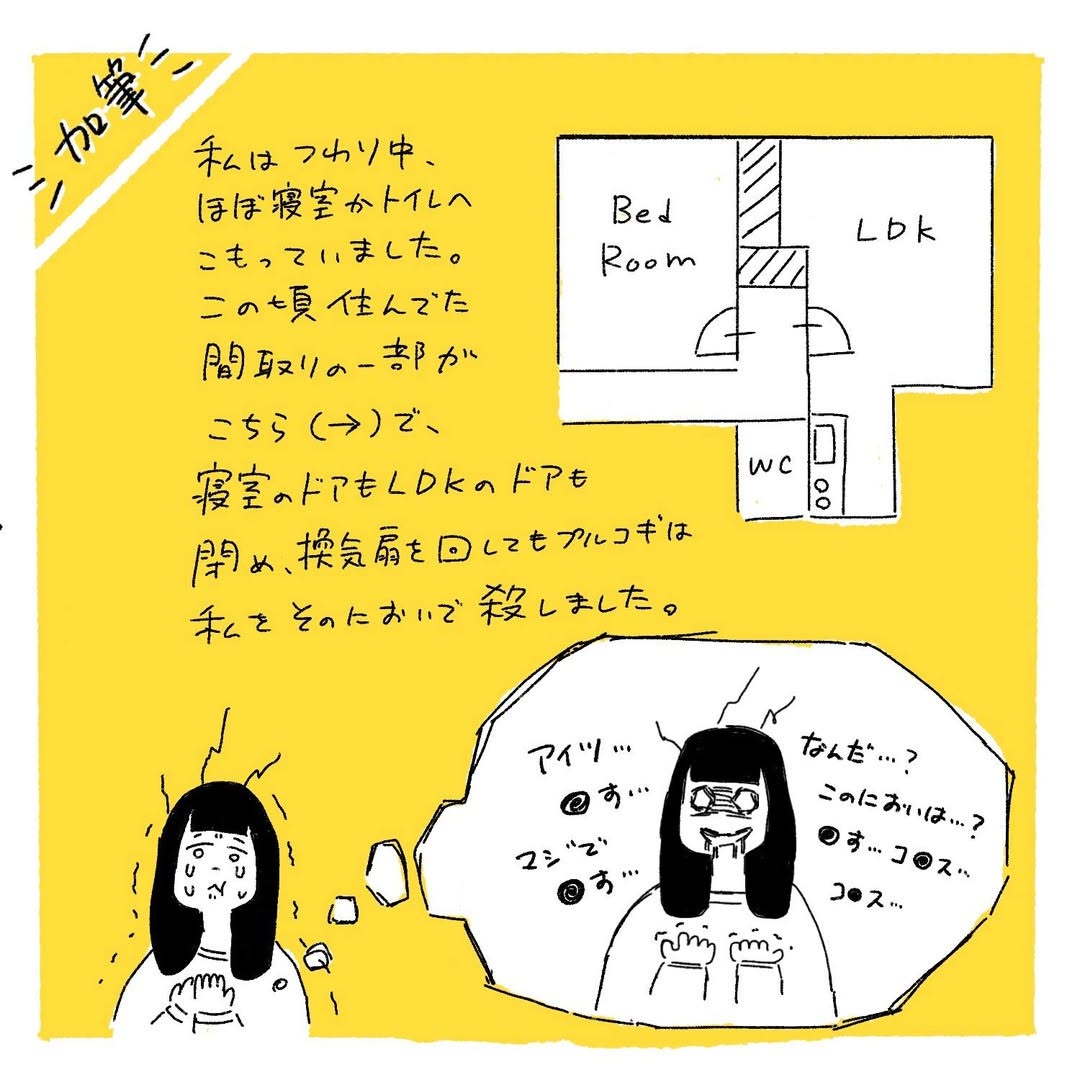 加筆
私はつわり中、
ほぼ寝室かトイレへ
こもっていました。
この頃住んでた
間取りの一部が
こちら(→)で、
寝室のドアもLDKのドアも
閉め、換気扇を回してもプルコギは
私をそのにおいで殺しました。
Bed
Room
LDK
WC
アイツ…
●す…
マジで
●す…
なんだ…?
このにおいは…?
●す…コ●ス…
コ●ス…